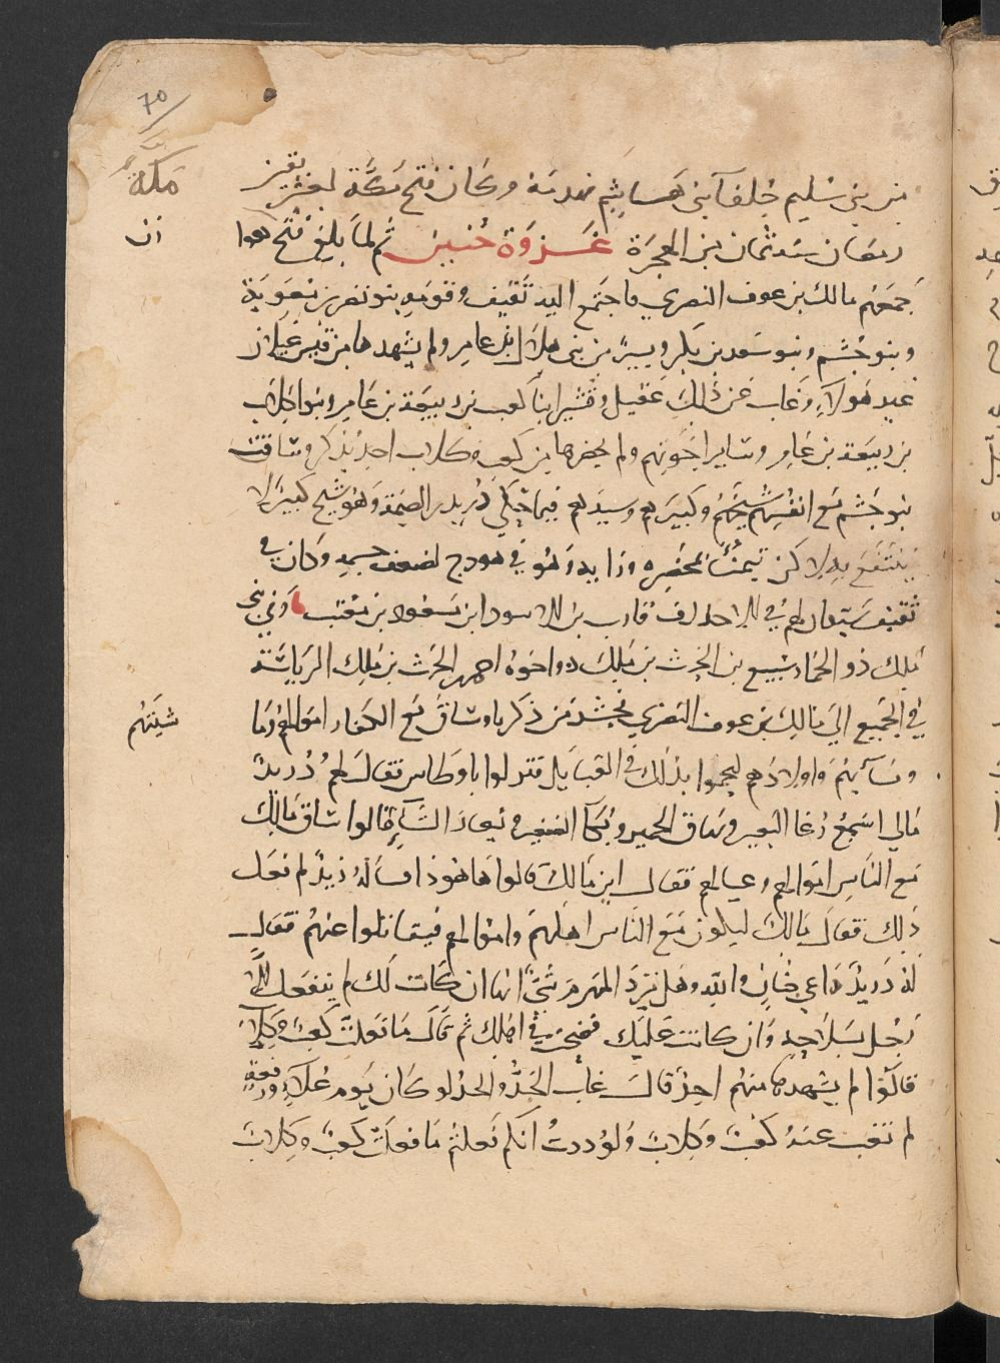 70
من بني سليم حلفا بني هاشم هدنة وكان فتح مكة لعشر بقين
مكة
رمضان سنة ثمان من الهجرة غزوة حنين ثم لما بلغ فتح هوا
زن
جمعهم مالك بن عوف النصري فاجتمع اليه ثقيف وقومه بنو نصر بن معوية
وبنو جشم وبنو سعد بن بكر ويسير من بني هلال بن عامر ولم يشهدها من قيس غيلان
غير هولاء وغاب عن ذلك عقيل وقشير ابنا كعب بن ربيعة بن عامر وبنوا كلاب
بن ربيعة بن عامر وساير اخوتهم ولم يحضرها من كعب وكلاب احد يذكر وساقت
بنو جشم مع انفسهم شيخهم وكبيرهم وسيدهم فيما خلي دريد بن الصمة وهو شيخ كبير لا
ينتفع به لاكن تيمنا بمحضره ورايه وهو في هودج لضعف جسمه وكان في
ثقيف سيدان لهم في الاحلاف قارب بن الاسود ابن مسعود بن معتب وفي بني
ملك ذو الخمار سبيع بن الحرث بن ملك واخوه احمر الحرث بن ملك الرياسة
في الجميع الي مالك بن عوف النصري فحشد من ذكرنا وساق مع الكفار اموالهم وما
شيتهم
ونسائهم واولادهم ليحموا بذلك في القتال فنزلوا باوطاس فقال لهم دريد
مالي اسمع رغا البعير ونهاق الحمير وبكا الصغير ويعار الشاء قالوا ساق مالك
مع الناس اموالهم وعيالهم فقال اين مالك قالوا هاهوذا فساله دريد لم فعل
ذلك فقال مالك ليكون مع الناس اهلهم واموالهم فيقاتلوا عنهم فقال
له دريد راعي ضان والله وهل يرد المهزم شئ انها ان كانت لك لم ينفعك الا
رجل بسلاحه وان كانت عليك فضحت في اهلك ثم قال ما فعلت كعب وكلاب
قالوا لم يشهدها منهم احد قال غاب الحد والجد لو كان يوم علاء ورفعة
لم تغب عنه كعب وكلاب ولوددت انكم فعلتم ما فعلت كعب وكلاب